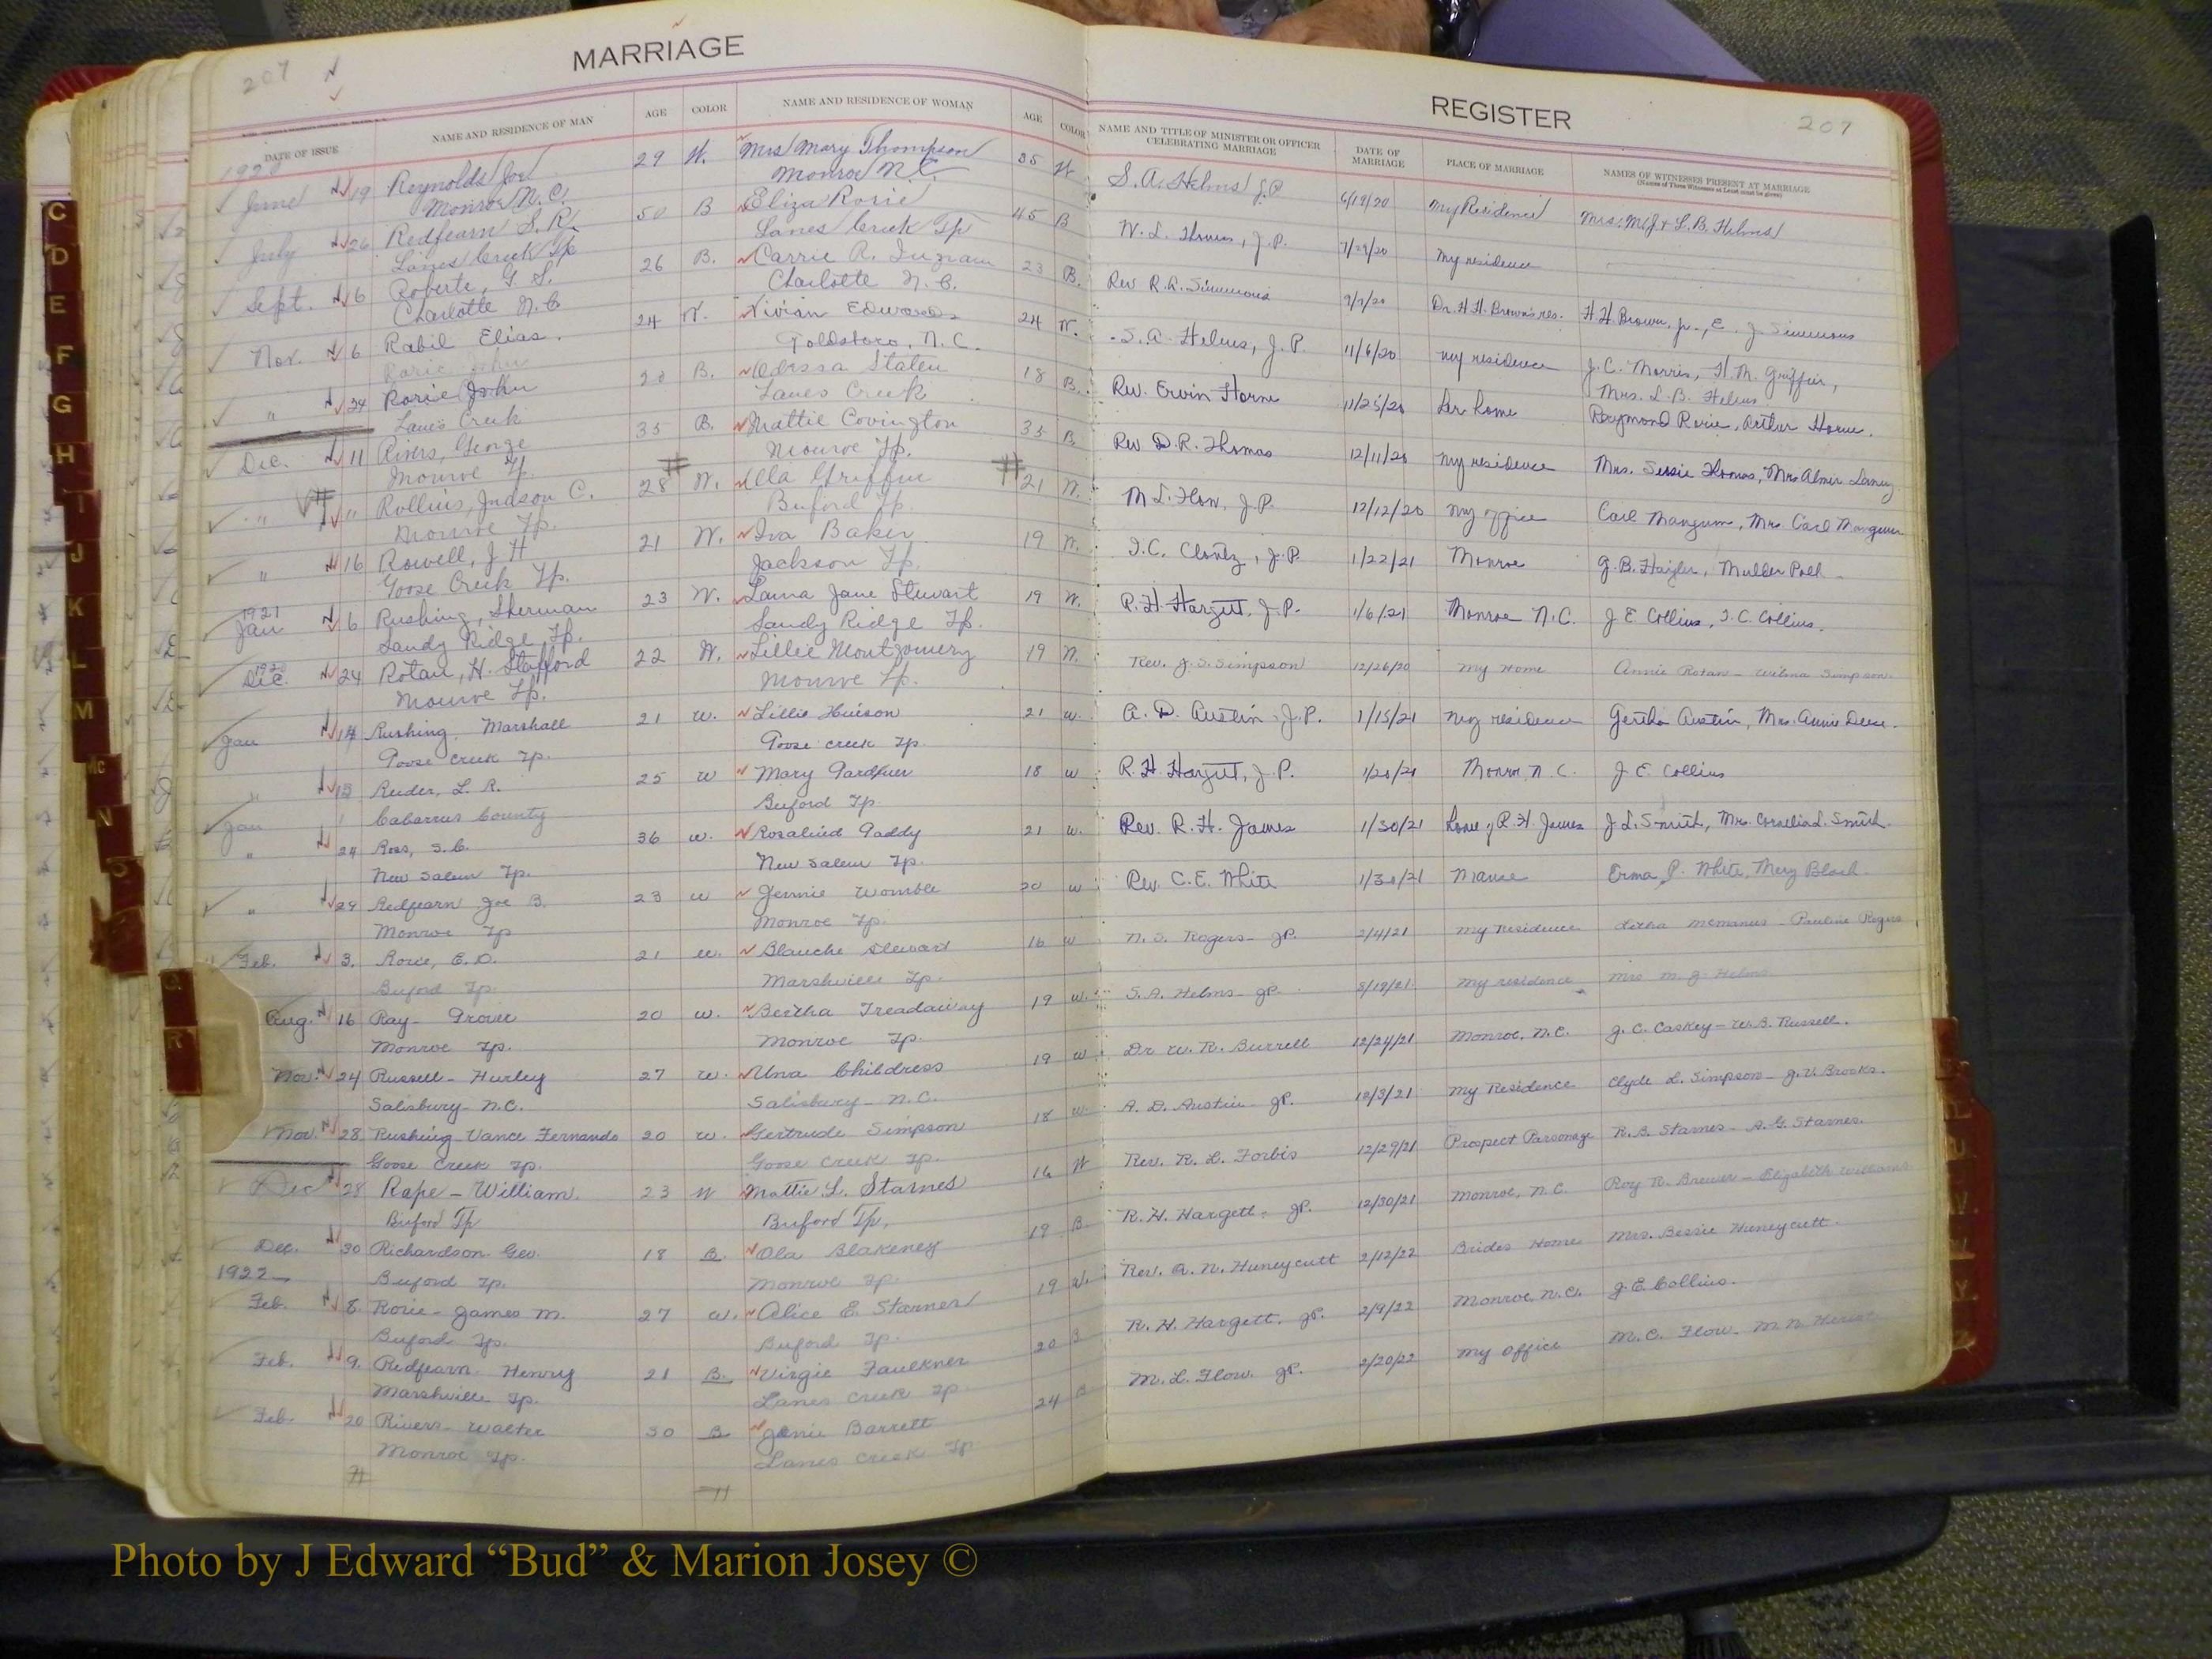 207 MARRIAGE REGISTER 207
DATE OF ISSUE NAME AND RESIDENCE OF MAN AGE COLOR NAME AND RESIDENCE OF WOMAN AGE COLOR NAME AND TITLE OF MINISTER OR OFFICER CELEBRATING MARRIAGE DATE OF MARRIAGE PLACE OF MARRIAGE NAMES OF WITNESSES PRESENT AT MARRIAGE
(Names of Three Witnesses at Least must be given)
1920
June 19 Reynolds Joe 29 W. Mrs Mary Thompson 35 W S. A. Helms J.P. 6/19/20 My Residence Mrs. M.J. & L.B. Helms
Monroe N.C. Monroe N.C.
July 26 Redfearn S. R. 50 B Eliza Rorie 45 B J.P. My residence
Lanes Creek Tp Lanes Creek Tp
Sept. 6 Roberts, G. S. 26 B. Carrie R. Ingram 23 B. Rev R.R. Simmons 9/7/20 Dr. H.H. Brown's res. H.H. Brown, Jr., E. J. Simmons
Charlotte N.C. Charlotte N.C.
Nov. 6 Rabil Elias. 24 W. Vivian Edwards 24 W. S. A. Helms, J.P. 11/6/20 my residence J.C. Morris, H.M. Griffin,
Rorie John Goldsboro, N.C. Mrs. L.B. Helms
" 24 Rorie John B. Odessa Staten 18 B. Rev. Ervin Horne 11/25/20 her home Raymond Rorie, Arthur Horne.
Lanes Creek Lanes Creek
Dec. 11 Rivers, George 35 B. Mattie Covington 35 B. Rev D.R. Thomas 12/11/20 my residence Mrs. Thomas, Mrs
Monroe Tp. Monroe Tp.
" " Rollins, Judson C. 28 W. Ella Griffin 21 W. M. L. Flow, J.P. 12/12/20 my office Carl Mangum, Mrs. Carl Mangum
Monroe Tp. Buford Tp.
" 16 Rowell, J H 21 W. Iva Baker 19 W. J.P. 1/22/21 Monroe G.B.
Goose Creek Tp. Jackson Tp.
1921
Jan 6 Rushing, Sherman 23 W. Jane Stewart 19 W. R.H. Hargett, J.P. 1/6/21 Monroe N.C. J E Collins, Collins.
Sandy Ridge Tp. Sandy Ridge Tp.
1920
Dec. 24 Rotan, H. Stafford 22 W. Lillie Montgomery 19 W. Rev. J. S. Simpson 12/26/20 My Home Annie Rotan - Wilma Simpson.
Monroe Tp. Monroe Tp.
Jan 14 Rushing Marshall 21 w. Lillie 21 w. A. D. Austin, J.P. 1/15/21 my residence Austin, Mrs. Annie
Goose Creek Tp. Goose Creek Tp.
" 15 L. R. 25 w Mary 18 w R.H. Hargett, J.P. Monroe, N.C. J E Collins
Cabarrus County Buford Tp.
Jan
" 24 Ross, S.C. 36 w. Gaddy 21 w. Rev. R. H. James 1/30/21 home of R.H. James J.L. Smith, Mrs. Smith.
New Salem Tp. New Salem Tp.
" 29 Redfearn Joe B. 23 w Jennie Womble 20 w Rev. C.E. White 1/30/21 Manse Erma P. White, Mary Black.
Monroe Tp Monroe Tp.
Feb. 3. Rorie, E.D. 21 w. Blanche Stewart 16 w N. S. Rogers - JP. 2/4/21 My Residence McManus - Pauline Rogers
Buford Tp. Marshville Tp.
Aug. 16 Ray - Grover 20 w. Bertha Treadaway 19 w. S. A. Helms - JP. My residence Mrs M. J. Helms
Monroe Tp. Monroe Tp.
Nov. 24 Russell - Hurley 27 w. Una Childress 19 w. Dr W. R. Burrell 12/24/21 Monroe, N.C. J. C. Caskey - W. B. Russell.
Salisbury - N.C. Salisbury - N.C.
Nov. 28 Rushing Vance Fernando 20 w. Gertrude Simpson 18 w. A. D. Austin JP. 12/3/21 My Residence Clyde L. Simpson - J. V. Brooks.
Goose Creek Tp. Goose Creek Tp.
Dec 28 Rape - William. 23 W Mattie L. Starnes 16 W Rev. R. L. Forbis 12/29/21 Prospect Parsonage R. B. Starnes - A. G. Starnes.
Buford Tp Buford Tp.
Dec. 30 Richardson Geo. 18 B. Ola Blakeney 19 B. R. H. Hargett, JP. 12/30/21 Monroe, N.C. Roy R. Brewer - Elizabeth Williams
1922 Buford Tp. Monroe Tp
Feb. 8 Rorie - James M. 27 w. Alice E. Starnes 19 W. Rev. A. N. Huneycutt 2/12/22 Brides Home Mrs. Bessie Huneycutt.
Buford Tp. Buford Tp.
Feb. 9. Redfearn Henry 21 B. Virgie Faulkner 20 B R. H. Hargett. JP. 2/9/22 Monroe, N.C. J. E. Collins.
Marshville Tp. Lanes Creek Tp
Feb. 20 Rivers - Walter 30 B Janie Barrett 24 B M. L. Flow. JP. 2/20/22 My Office M. C. Flow. M. N.
Monroe Tp. Lanes Creek Tp
C
D
E
F
G
H
I
J
K
L
M
MC
N
O
Q
R
Photo by J Edward “Bud” & Marion Josey ©